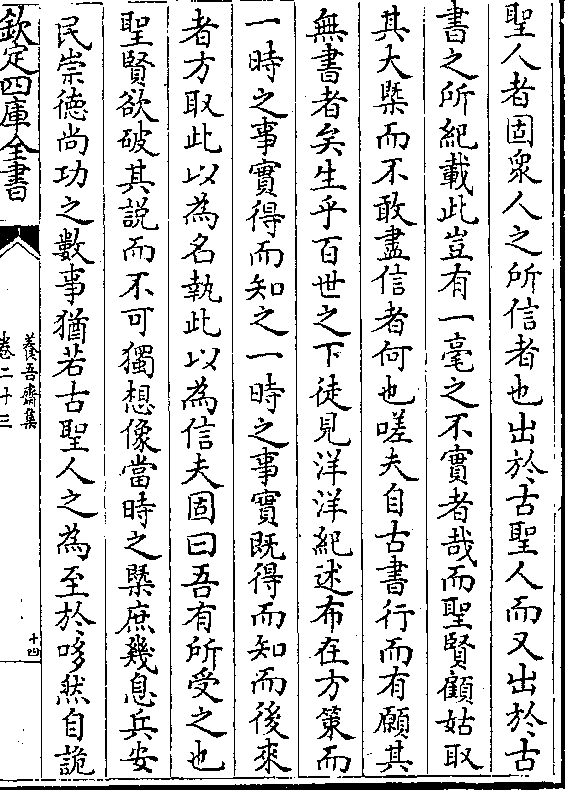 聖人者固衆人之所信者也出於古聖人而又出於古
書之所紀載此豈有一毫之不實者哉而聖賢顧姑取
其大槩而不敢盡信者何也嗟夫自古書行而有願其
無書者矣生乎百世之下徒見洋洋紀述布在方策而
一時之事實得而知之一時之事實既得而知而後來
者方取此以為名執此以為信夫固曰吾有所受之也
聖賢欲破其說而不可獨想像當時之槩庶幾息兵安
民崇德尚功之數事猶若古聖人之為至於哆然自詭
欽定四庫全書
養吾齋集
卷二十三
十四